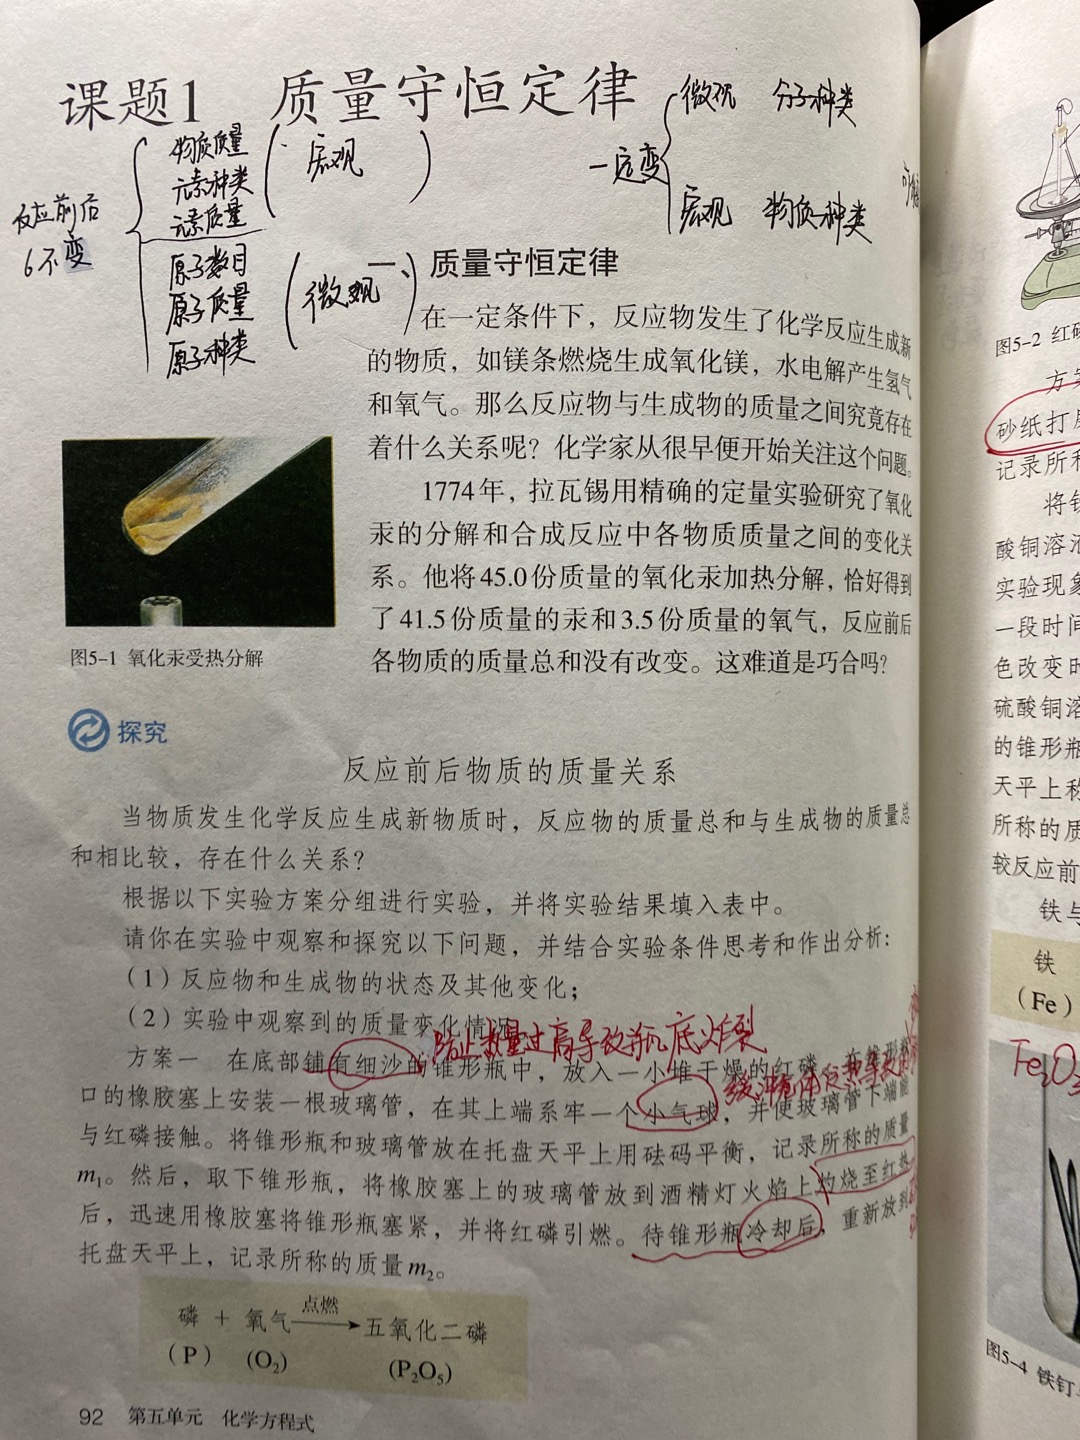 课题1 质量守恒定律
微观 分子种类
一定变
宏观 物质种类
反应前后
6不变
物质质量
元素种类
元素质量
宏观
原子数目
原子质量
原子种类
微观
一、质量守恒定律
在一定条件下，反应物发生了化学反应生成新
的物质，如镁条燃烧生成氧化镁，水电解产生氢气
和氧气。那么反应物与生成物的质量之间究竟存在
着什么关系呢？化学家从很早便开始关注这个问题。
1774年，拉瓦锡用精确的定量实验研究了氧化
汞的分解和合成反应中各物质质量之间的变化关
系。他将45.0份质量的氧化汞加热分解，恰好得到
了41.5份质量的汞和3.5份质量的氧气，反应前后
各物质的质量总和没有改变。这难道是巧合吗？
图5-1 氧化汞受热分解
探究
反应前后物质的质量关系
当物质发生化学反应生成新物质时，反应物的质量总和与生成物的质量总
和相比较，存在什么关系？
根据以下实验方案分组进行实验，并将实验结果填入表中。
请你在实验中观察和探究以下问题，并结合实验条件思考和作出分析：
（1）反应物和生成物的状态及其他变化；
（2）实验中观察到的质量变化情况
防止热量过高导致瓶底炸裂
方案一 在底部铺有细沙的锥形瓶中，放入一小堆干燥的红磷，在锥形瓶
口的橡胶塞上安装一根玻璃管，在其上端系牢一个小气球，并使玻璃管下端能
与红磷接触。将锥形瓶和玻璃管放在托盘天平上用砝码平衡，记录所称的质量
m₁。然后，取下锥形瓶，将橡胶塞上的玻璃管放到酒精灯火焰上灼烧至红热
后，迅速用橡胶塞将锥形瓶塞紧，并将红磷引燃。待锥形瓶冷却后，重新放到
托盘天平上，记录所称的质量m₂。
磷 + 氧气 点燃→ 五氧化二磷
(P) (O₂) (P₂O₅)
92 第五单元 化学方程式
图5-2 红
方案
砂纸打
记录所
将铁
酸铜溶
实验现象
一段时间
色改变时
硫酸铜溶
的锥形瓶
天平上称
所称的质
较反应前
铁与
铁
(Fe)
图5-4 铁钉